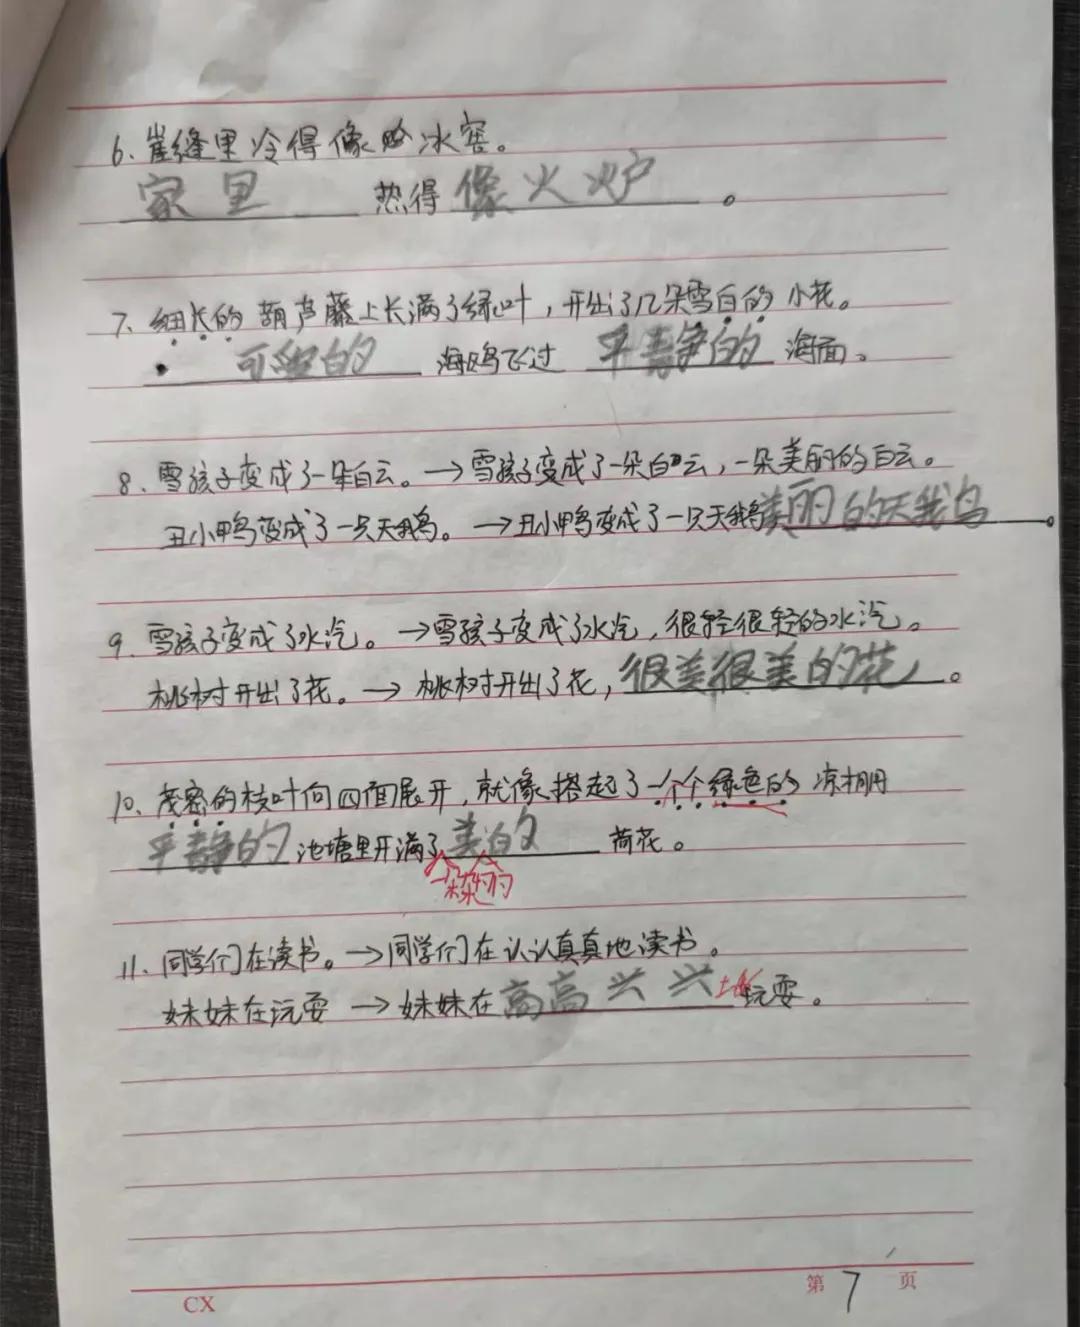 6、崖缝里冷得像冰窖。
家里热得像火炉。
7、细长的葫芦藤上长满了绿叶，开出了几朵雪白的小花。
可爱的海鸥飞过平静的海面。
8、雪孩子变成了一朵白云。→雪孩子变成了一朵白云，一朵美丽的白云。
丑小鸭变成了一只天鹅。→丑小鸭变成了一只天鹅美丽的天鹅。
9、雪孩子变成了水汽。→雪孩子变成了水汽，很轻很轻的水汽。
桃树开出了花。→桃树开出了花，很美很美的花。
10、茂密的枝叶向四面展开，就像搭起了一个个绿色的凉棚
平静的池塘里开满了美的荷花。
一朵朵
11、同学们在读书。→同学们在认认真真地读书。
妹妹在玩耍→妹妹在高高兴兴地玩耍。
CX 第7页